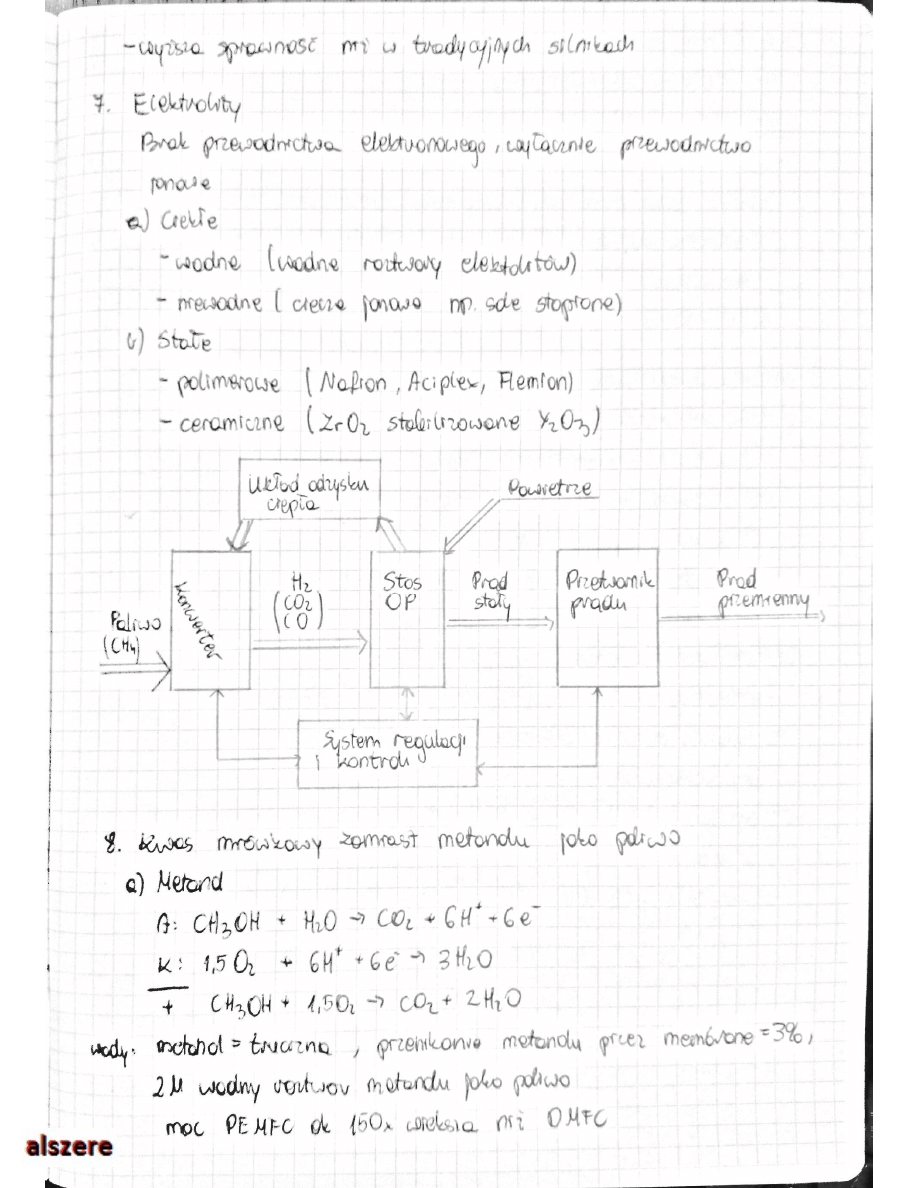 - wyższa sprawność niż w tradycyjnych silnikach
7. Elektrolity
Brak przewodnictwa elektronowego, wyłącznie przewodnictwo
jonowe
a) Ciekłe
- wodne (wodne roztwory elektrolitów)
- niewodne (ciecze jonowe np. sole stopione)
b) Stałe
- polimerowe (Nafion, Aciplex, Flemion)
- ceramiczne (ZrO₂ stabilizowane Y₂O₃)
Układ odzysku
ciepła
Powietrze
Paliwo
(CH₄)
Konwerter
H₂
(CO₂
CO)
Stos
OP
Prąd
stały
Przetwornik
prądu
Prąd
przemienny
System regulacji
i kontroli
8. Kwas mrówkowy zamiast metanolu jako paliwo
a) Metanol
A: CH₃OH + H₂O → CO₂ + 6H⁺ + 6e⁻
K: 1,5 O₂ + 6H⁺ + 6e⁻ → 3H₂O
+ CH₃OH + 1,5O₂ → CO₂ + 2H₂O
wady: metanol = trucizna, przenikanie metanolu przez membranę = 3%,
2M wodny roztwór metanolu jako paliwo
moc PEMFC ok 150x większa niż DMFC
alszere